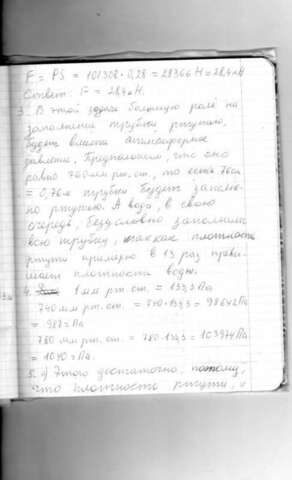 F = PS = 101308·0,28 = 28366 Н = 28,4 кН
Ответ: F = 28,4 кН.
3. В этой задаче большую роль на
заполнение трубки ртутью,
будет влиять атмосферное
давление. Предположим, что оно
равно 760 мм рт. ст., то есть 76см
= 0,76м трубки будет заполне-
но ртутью. А вода, в свою
очередь, безусловно заполнит
всю трубку, так как плотность
ртути примерно в 13 раз превы-
шает плотность воды.
4. 1 мм рт. ст. = 133,3 Па
740 мм рт. ст. = 740·133,3 = 98642 Па
= 987 гПа
780 мм рт. ст. = 780·133,3 = 103974 Па
= 1040 гПа.
5. а) Этого достаточно, потому,
что плотность ртути, в